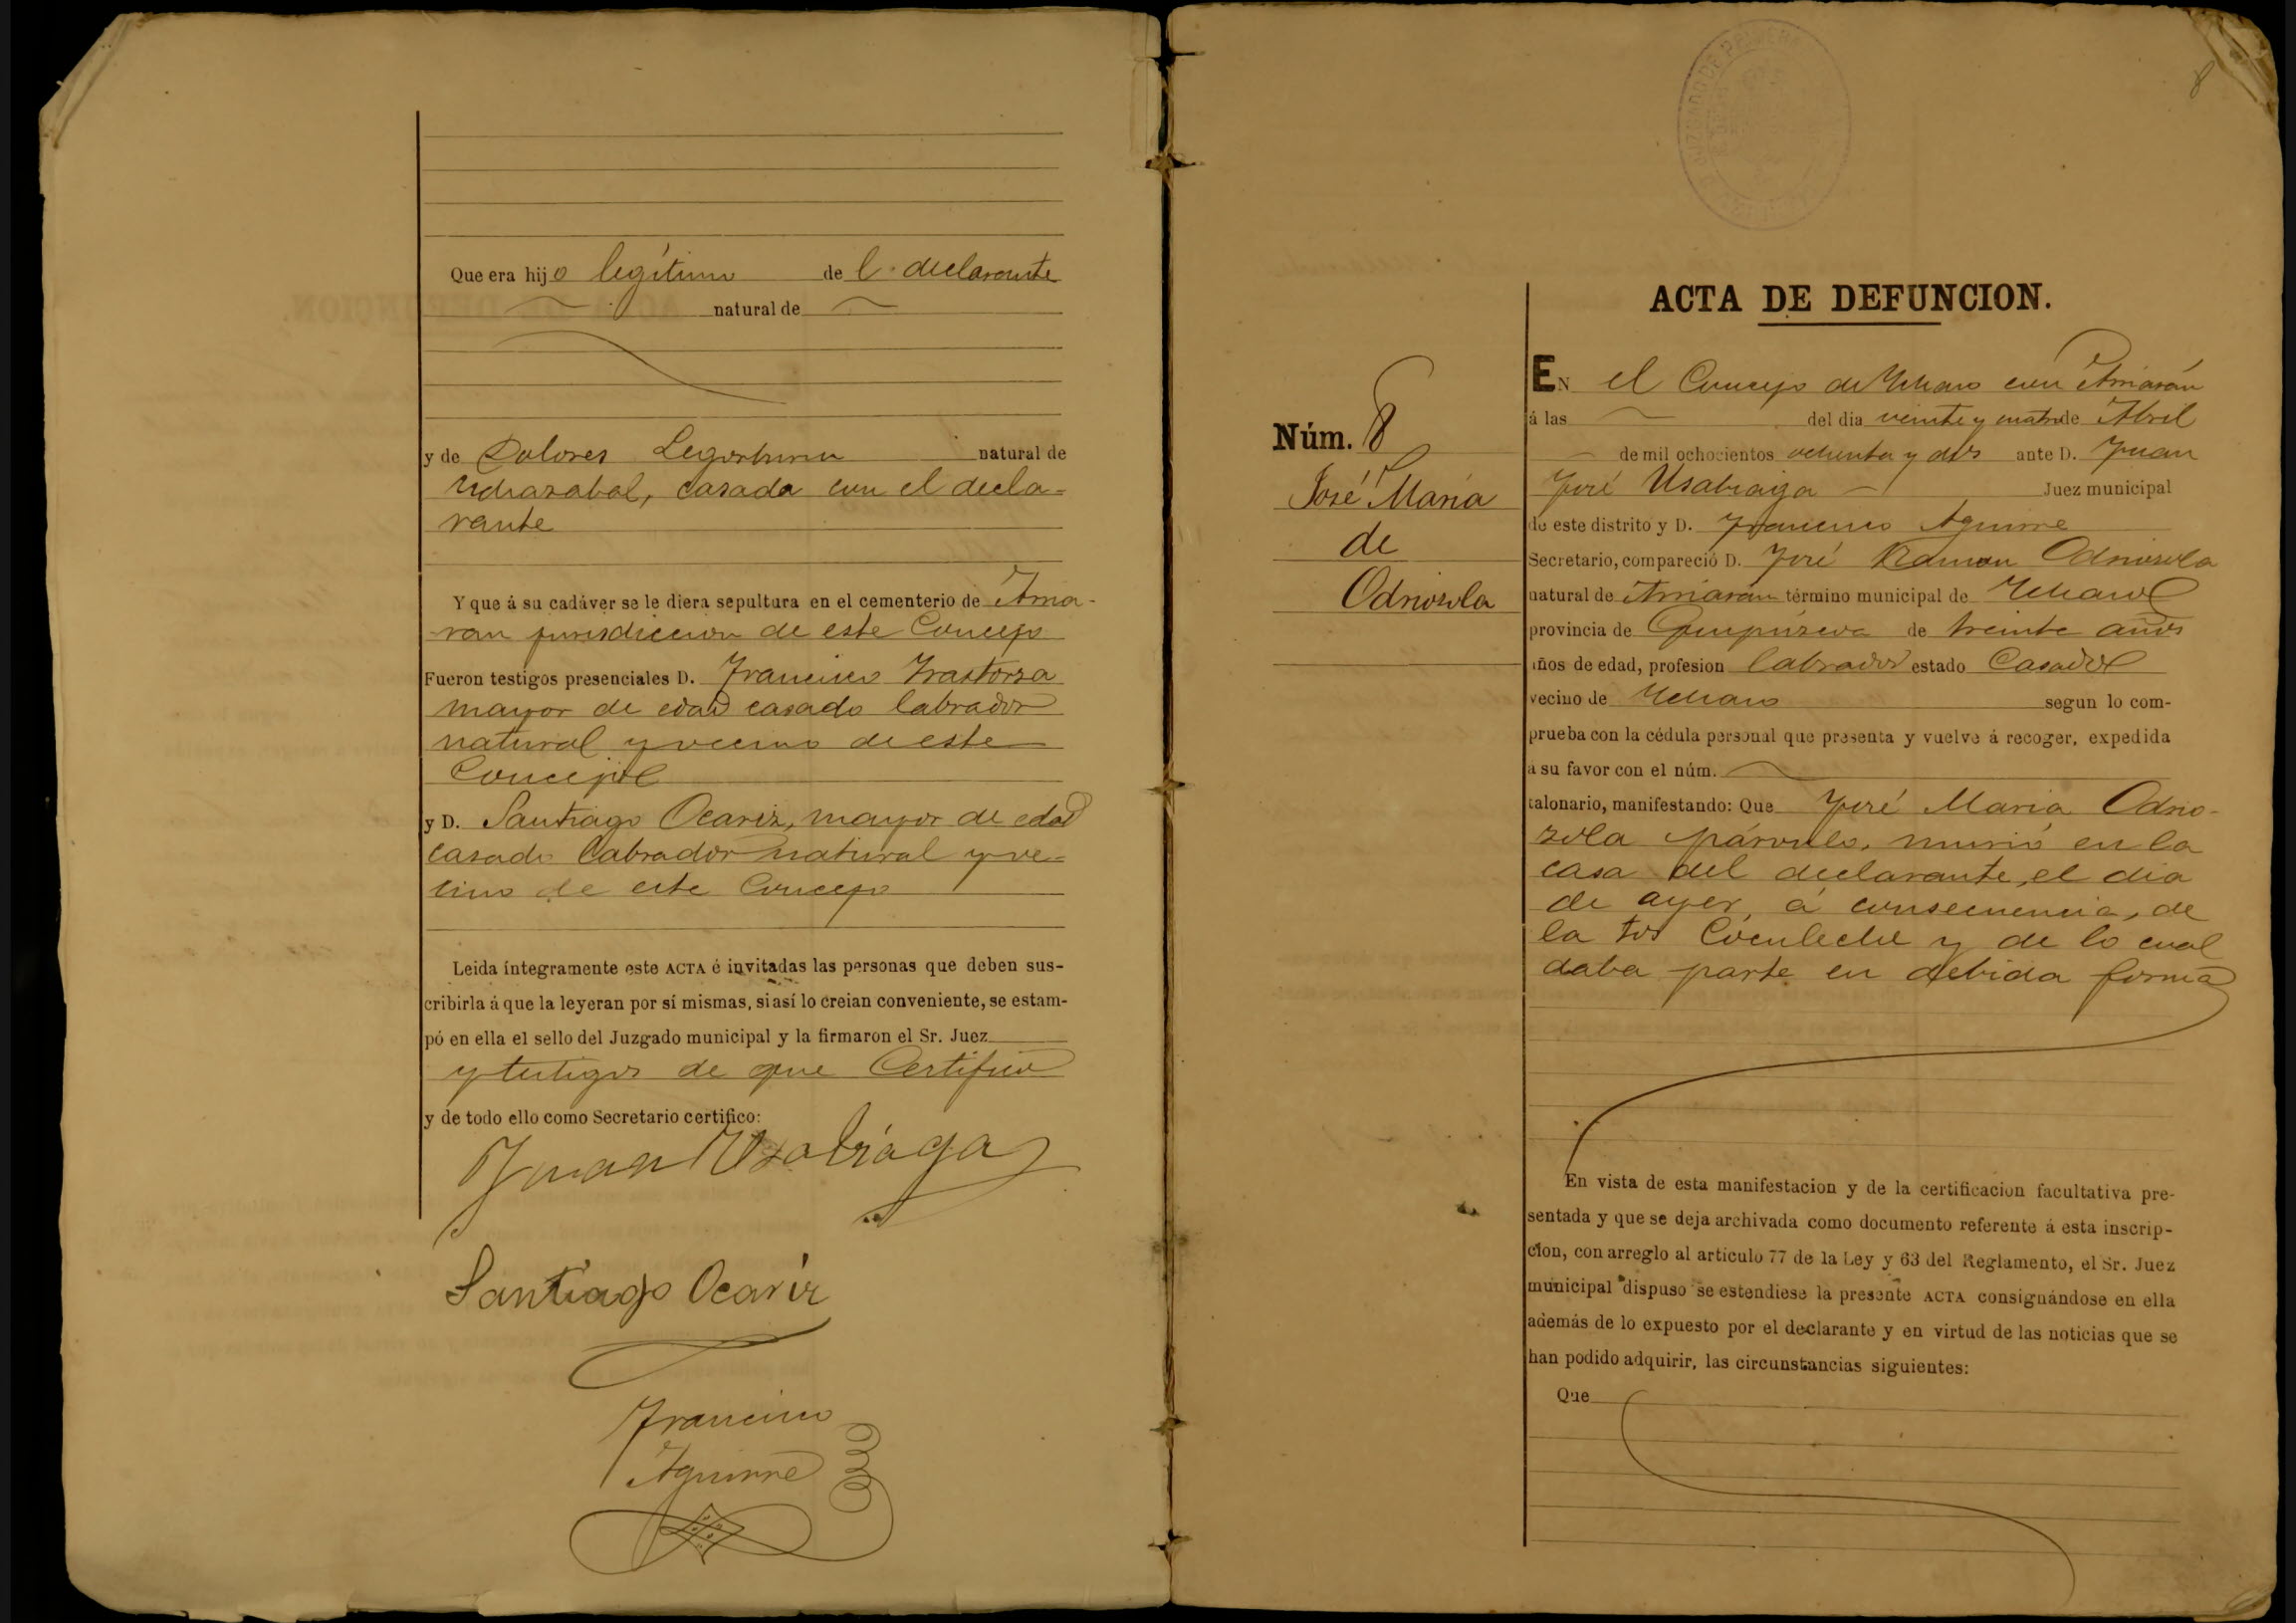 Que era hijo legítimo de l declarante
natural de
y de Dolores Legorburu natural de
Vidrazabal, casada con el decla=
rante
Y que á su cadáver se le diera sepultura en el cementerio de Ama-
ran jurisdiccion de este Concejo
Fueron testigos presenciales D. Francisco Irastorza
mayor de edad casado labrador
natural y vecino de este
Concejo
y D. Santiago Ocariz, mayor de edad
casado labrador natural y ve=
cino de este Concejo
Leida íntegramente este ACTA é invitadas las personas que deben sus-
cribirla á que la leyeran por sí mismas, si así lo creian conveniente, se estam-
pó en ella el sello del Juzgado municipal y la firmaron el Sr. Juez
y testigos de que Certifico
y de todo ello como Secretario certifico:
Juan Usabiaga
Santiago Ocariz
Francisco
Aguirre
8
ACTA DE DEFUNCION.
Núm. 8
José María
de
Odriozola
EN el Concejo de Ichaso con Amarán
á las del dia veinte y cuatro de Abril
de mil ochocientos ochenta y dos ante D. Juan
José Usabiaga Juez municipal
de este distrito y D. Francisco Aguirre
Secretario, compareció D. José Ramon Odriozola
natural de Amarán término municipal de Ichaso
provincia de Guipúzcoa de treinta años
años de edad, profesion labrador estado Casado
vecino de Ichaso segun lo com-
prueba con la cédula personal que presenta y vuelve á recoger, expedida
á su favor con el núm.
talonario, manifestando: Que José María Odrio-
zola párvulo, murió en la
casa del declarante, el dia
de ayer, á consecuencia, de
la tos Coculeche y de lo cual
daba parte en debida forma
En vista de esta manifestacion y de la certificacion facultativa pre-
sentada y que se deja archivada como documento referente á esta inscrip-
cion, con arreglo al articulo 77 de la Ley y 63 del Reglamento, el Sr. Juez
municipal dispuso se estendiese la presente ACTA consignándose en ella
además de lo expuesto por el declarante y en virtud de las noticias que se
han podido adquirir, las circunstancias siguientes:
Que